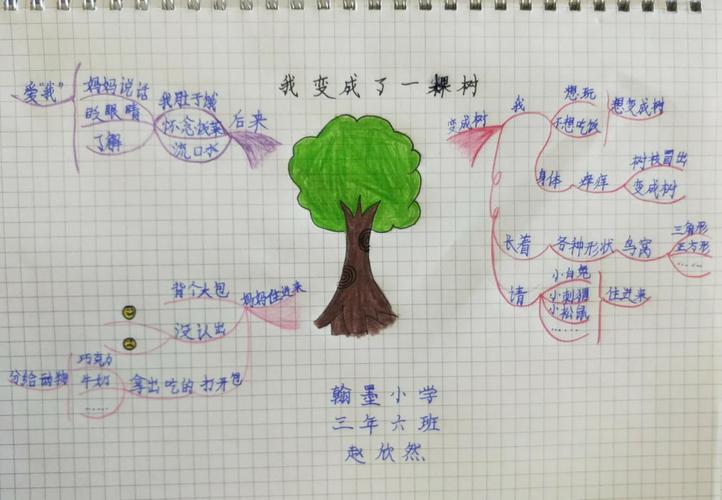 我变成了一棵树
变成树
我
想玩
不想吃饭
想变成树
身体
痒痒
树枝冒出
变成树
长着
各种形状
鸟窝
三角形
正方形
……
请
小白兔
小刺猬
小松鼠
……
住进来
妈妈住进来
背个大包
没认出
打开包
拿出吃的
巧克力
牛奶
……
分给动物
后来
我肚子饿
怀念饭菜
流口水
妈妈说话
眨眼睛
了解
爱“我”
翰墨小学
三年六班
赵欣然